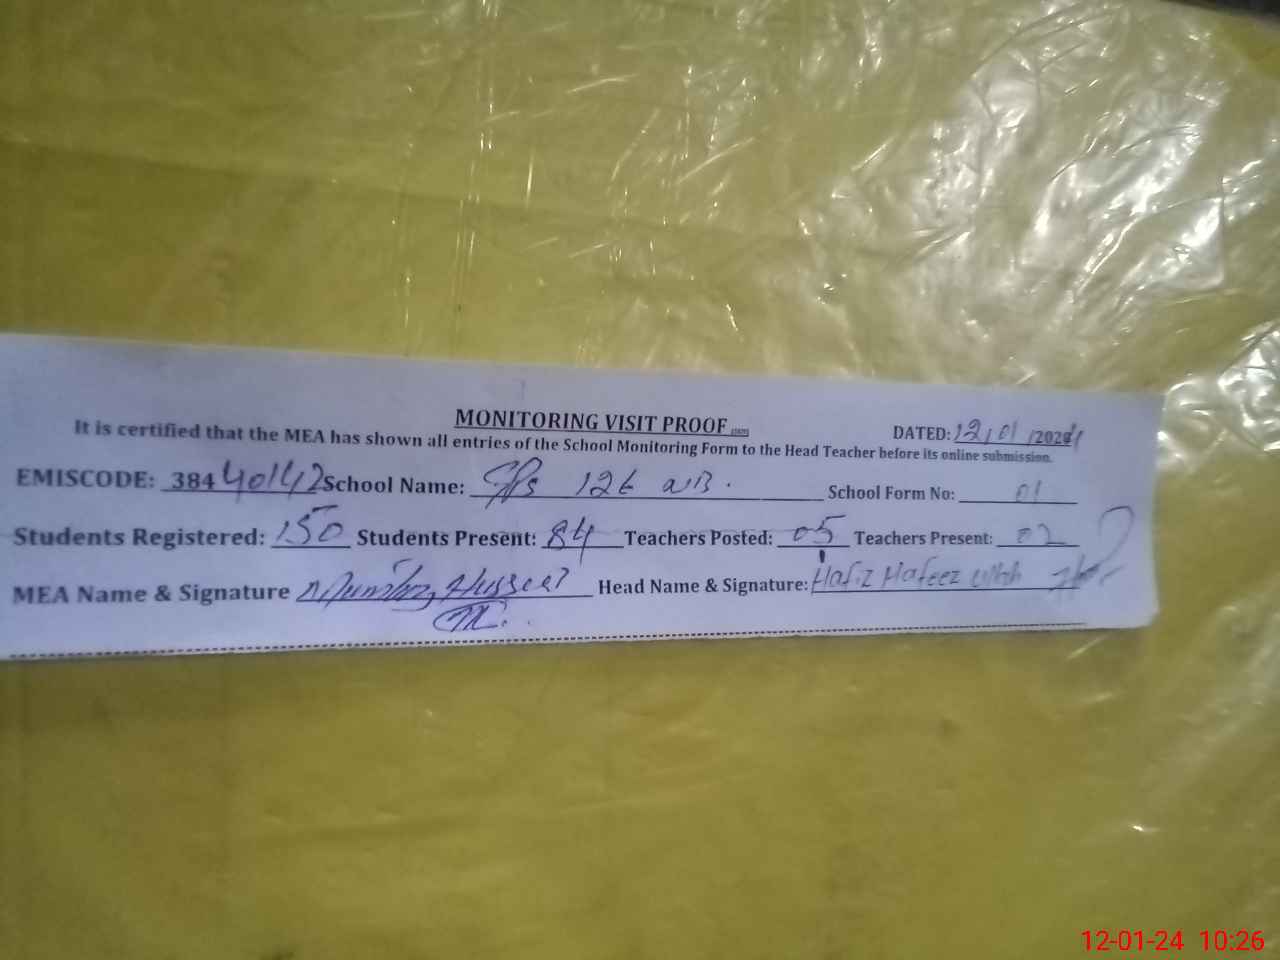 MONITORING VISIT PROOF
DATED: 12/01/2024
It is certified that the MEA has shown all entries of the School Monitoring Form to the Head Teacher before its online submission.
EMISCODE: 38440142 School Name: GPS 126 WB. School Form No: 01
Students Registered: 150 Students Present: 84 Teachers Posted: 05 Teachers Present: 02
MEA Name & Signature Hussain Head Name & Signature: Hafiz Hafeez Ullah
12-01-24 10:26